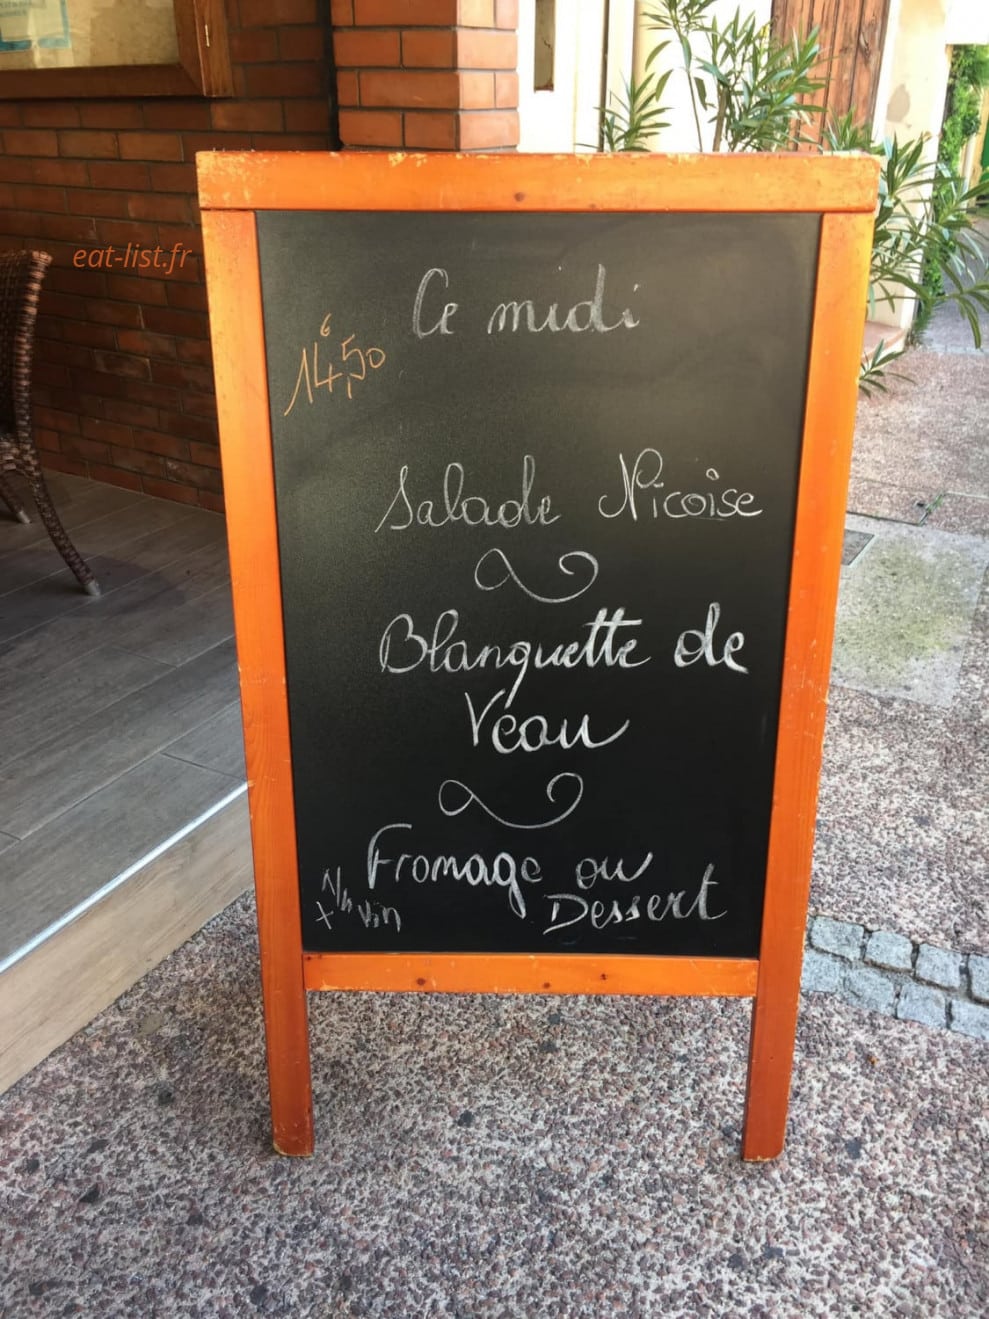 eat-list.fr
Ce midi
14,50
Salade Niçoise
Blanquette de
Veau
Fromage ou
Dessert
+ 1/4 vin